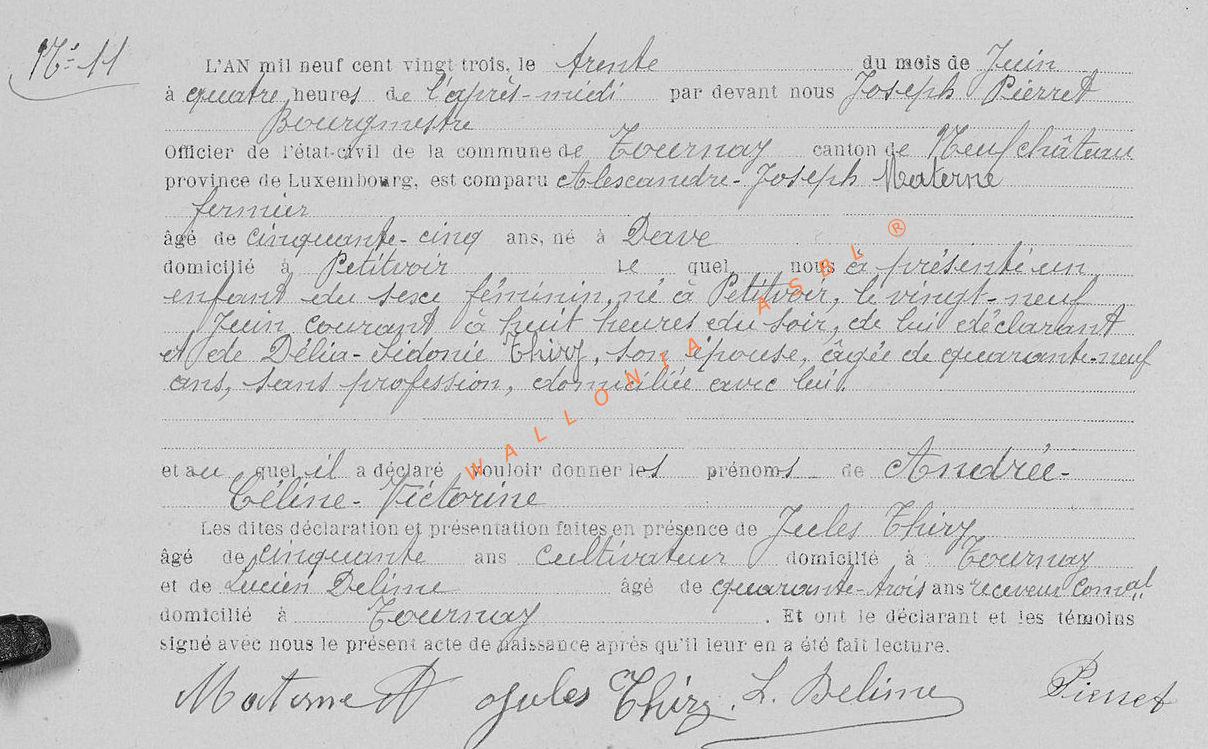 N° 11
L'AN mil neuf cent vingt trois, le trente du mois de Juin
à quatre heures de l'après-midi par devant nous Joseph Pierret
Bourgmestre
Officier de l'état-civil de la commune de Tournay canton de Neufchâteau
province de Luxembourg, est comparu Alexandre-Joseph Materne
fermier
âgé de cinquante-cinq ans, né à Dave
domicilié à Petitvoir le quel nous a présenté un
enfant du sexe féminin, né à Petitvoir, le vingt-neuf
Juin courant à huit heures du soir, de lui déclarant
et de Délia-Sidonie Thiry, son épouse, âgée de quarante-neuf
ans, sans profession, domiciliée avec lui.
et au quel il a déclaré vouloir donner les prénoms de Andrée-
Céline-Victorine
Les dites déclaration et présentation faites en présence de Jules Thiry
âgé de cinquante ans cultivateur domicilié à Tournay
et de Lucien Delime âgé de quarante-trois ans receveur comal
domicilié à Tournay. Et ont le déclarant et les témoins
signé avec nous le présent acte de naissance après qu'il leur en a été fait lecture.
Materne A Jules Thiry. L. Delime Pierret
WALLONIA ASBL ®